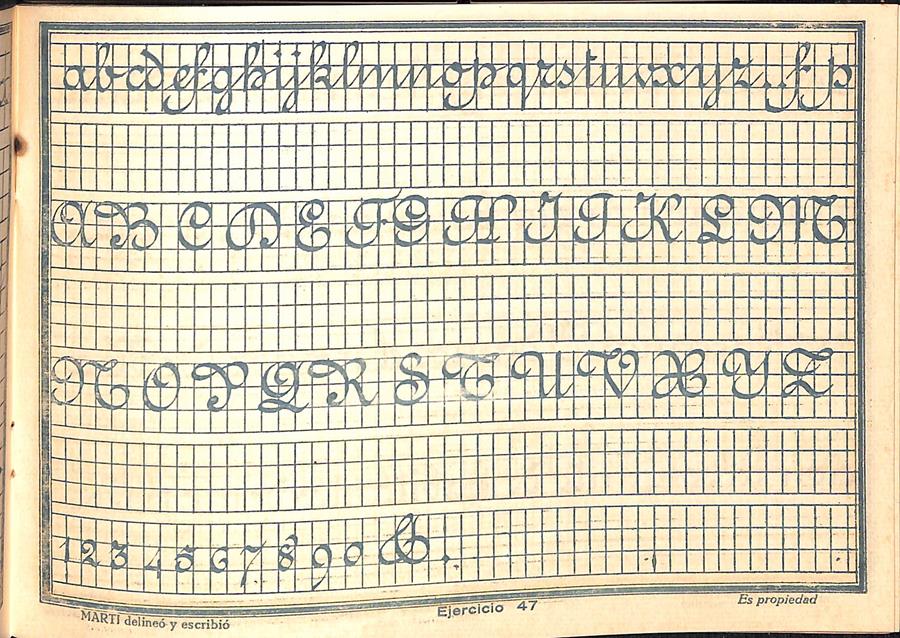 a b c d e f g h i j k l m n o p q r s t u v x y z . , f p
A B C D E F G H I J K L M
N O P Q R S T U V X Y Z
1 2 3 4 5 6 7 8 9 0 & .
MARTI delineó y escribió
Ejercicio 47
Es propiedad